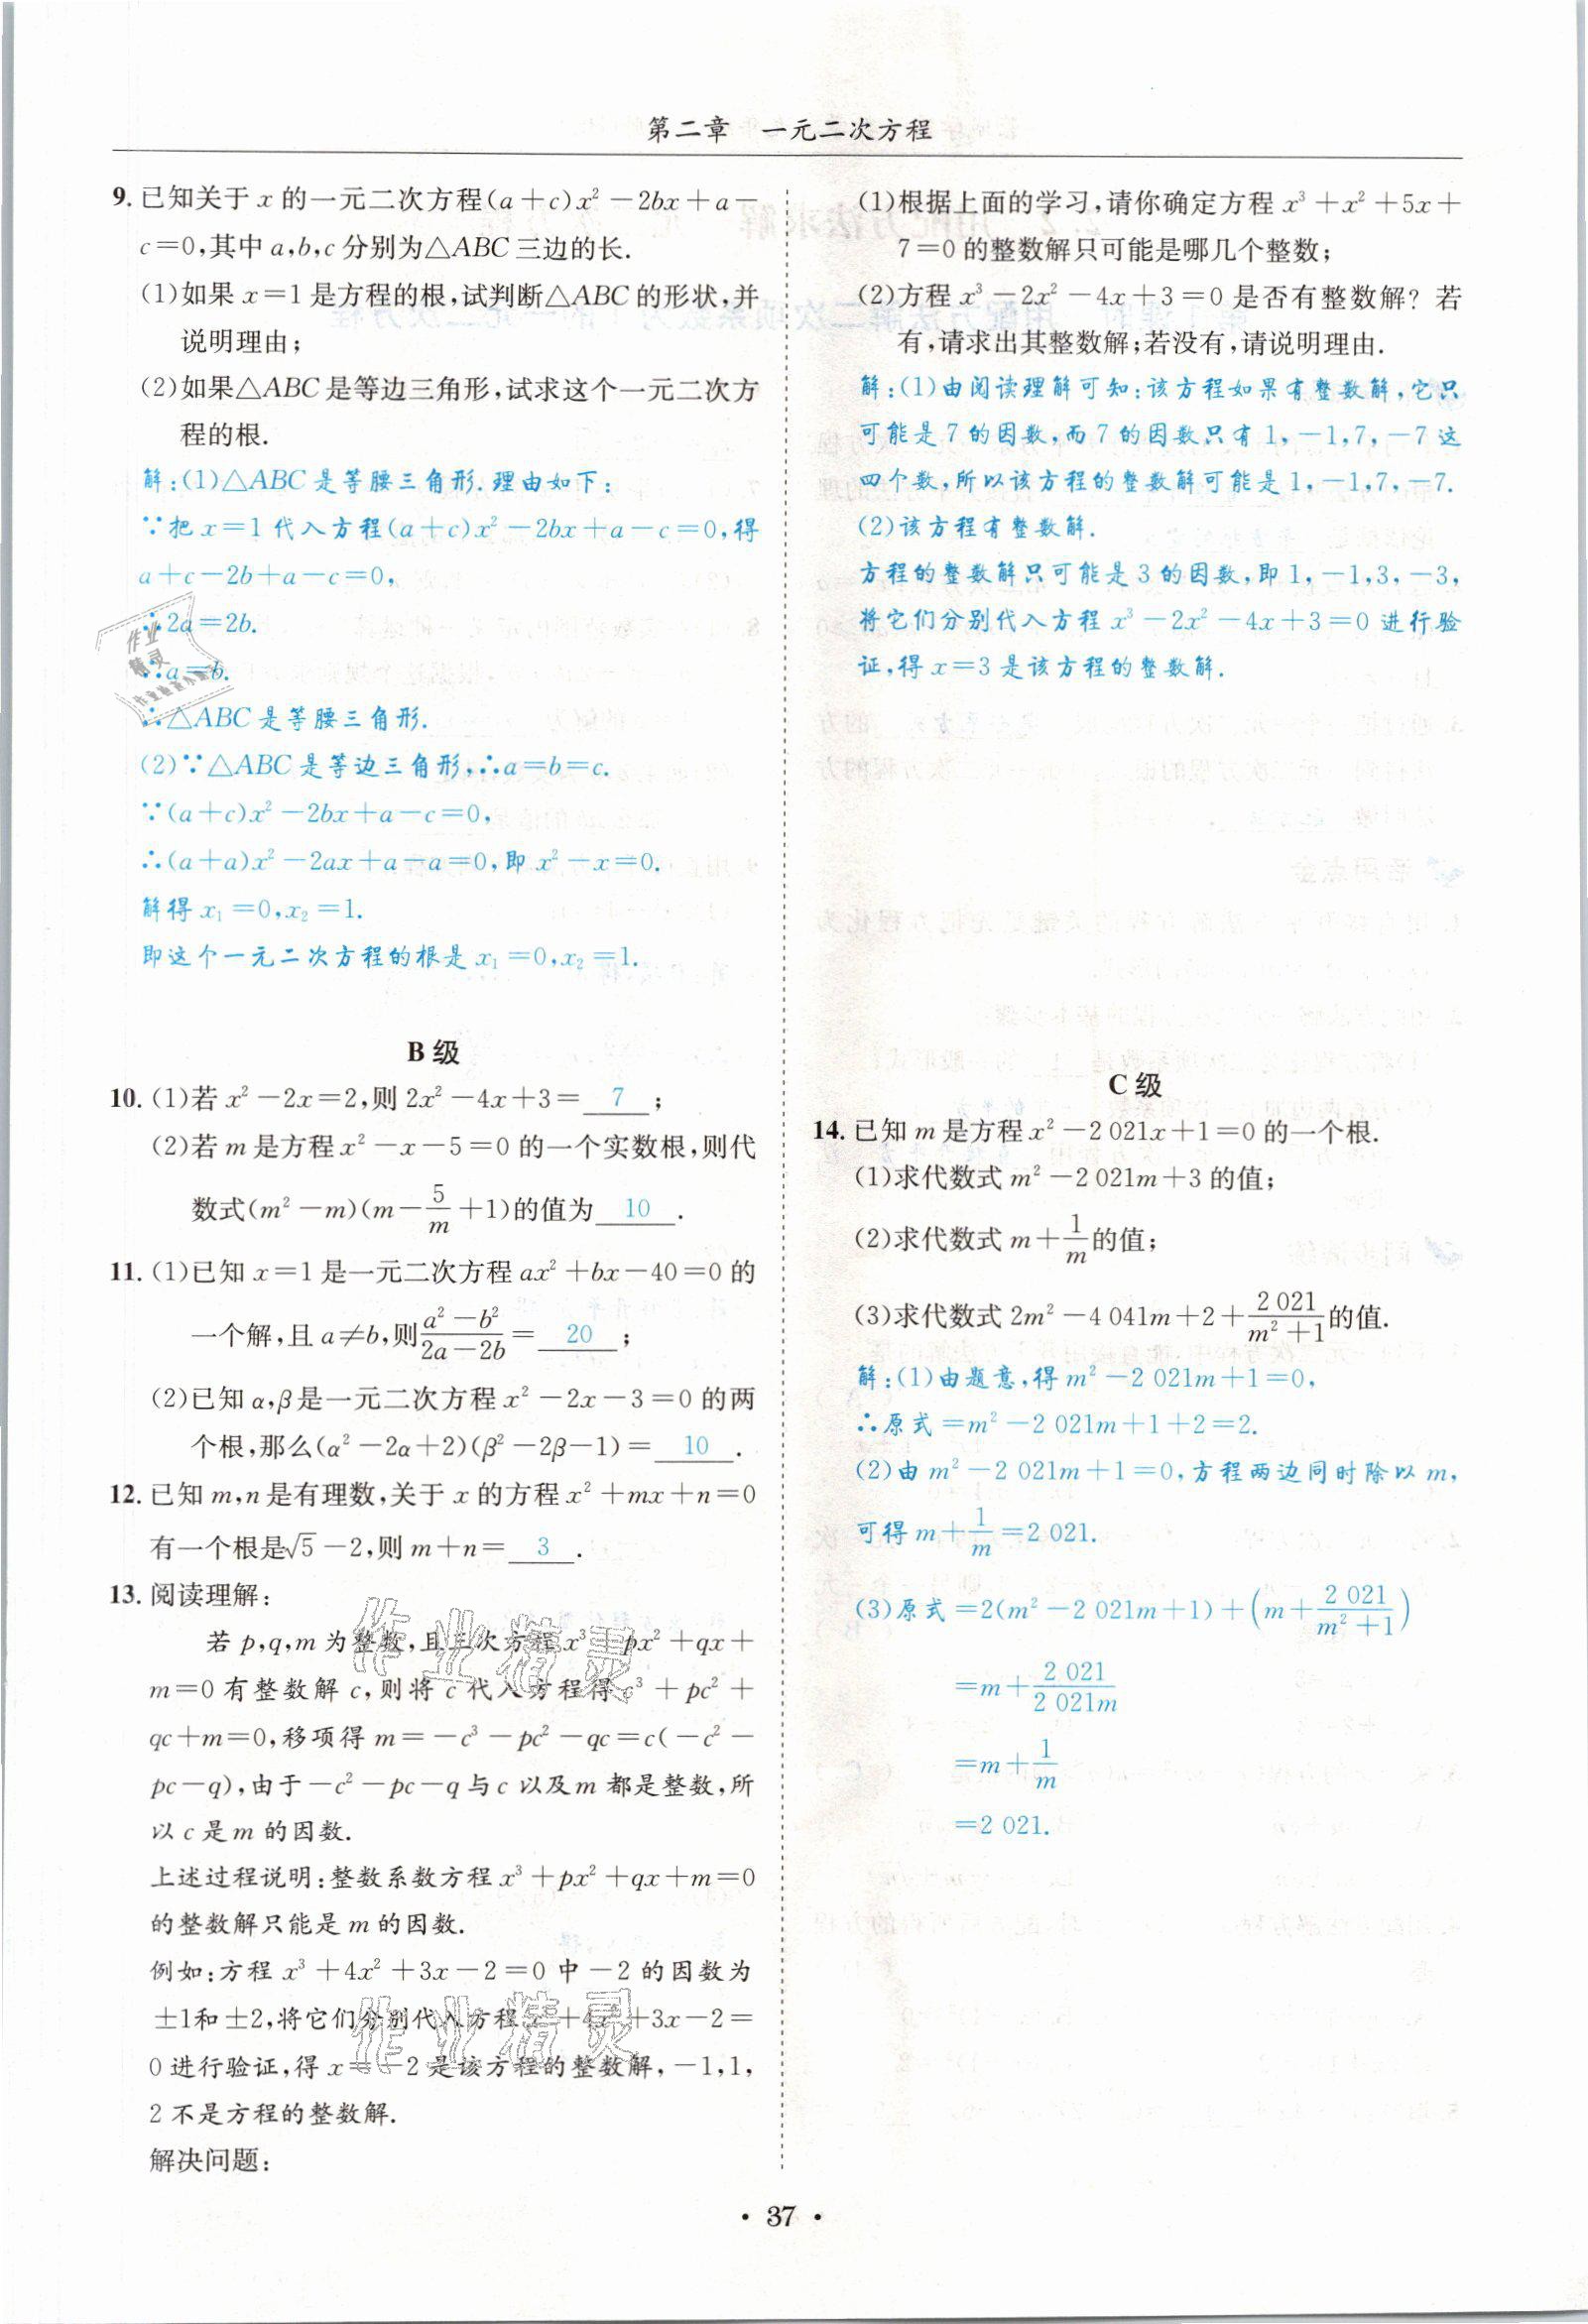 第二章 一元二次方程
9. 已知关于 x 的一元二次方程(a+c)x²-2bx+a-
c=0,其中 a,b,c 分别为△ABC 三边的长.
(1)如果 x=1 是方程的根,试判断△ABC 的形状,并
说明理由;
(2)如果△ABC 是等边三角形,试求这个一元二次方
程的根.
解:(1)△ABC 是等腰三角形.理由如下:
∵把 x=1 代入方程(a+c)x²-2bx+a-c=0,得
a+c-2b+a-c=0,
∴2a=2b.
∴a=b.
∴△ABC 是等腰三角形.
(2)∵△ABC 是等边三角形,∴a=b=c.
∵(a+c)x²-2bx+a-c=0,
∴(a+a)x²-2ax+a-a=0,即 x²-x=0.
解得 x₁=0,x₂=1.
即这个一元二次方程的根是 x₁=0,x₂=1.
B 级
10. (1)若 x²-2x=2,则 2x²-4x+3= 7 ;
(2)若 m 是方程 x²-x-5=0 的一个实数根,则代
数式(m²-m)(m-5/m+1)的值为 10 .
11. (1)已知 x=1 是一元二次方程 ax²+bx-40=0 的
一个解,且 a≠b,则(a²-b²)/(2a-2b)= 20 ;
(2)已知 α,β 是一元二次方程 x²-2x-3=0 的两
个根,那么(α²-2α+2)(β²-2β-1)= 10 .
12. 已知 m,n 是有理数,关于 x 的方程 x²+mx+n=0
有一个根是√5-2,则 m+n= 3 .
13. 阅读理解:
若 p,q,m 为整数,且三次方程 x³+px²+qx+
m=0 有整数解 c,则将 c 代入方程得 c³+pc²+
qc+m=0,移项得 m=-c³-pc²-qc=c(-c²-
pc-q),由于-c²-pc-q 与 c 以及 m 都是整数,所
以 c 是 m 的因数.
上述过程说明:整数系数方程 x³+px²+qx+m=0
的整数解只能是 m 的因数.
例如:方程 x³+4x²+3x-2=0 中-2 的因数为
±1和±2,将它们分别代入方程 x³+4x²+3x-2=
0 进行验证,得 x=-2 是该方程的整数解,-1,1,
2 不是方程的整数解.
解决问题:
(1)根据上面的学习,请你确定方程 x³+x²+5x+
7=0 的整数解只可能是哪几个整数;
(2)方程 x³-2x²-4x+3=0 是否有整数解? 若
有,请求出其整数解;若没有,请说明理由.
解:(1)由阅读理解可知:该方程如果有整数解,它只
可能是 7 的因数,而 7 的因数只有 1,-1,7,-7 这
四个数,所以该方程的整数解可能是 1,-1,7,-7.
(2)该方程有整数解.
方程的整数解只可能是 3 的因数,即 1,-1,3,-3,
将它们分别代入方程 x³-2x²-4x+3=0 进行验
证,得 x=3 是该方程的整数解.
C 级
14. 已知 m 是方程 x²-2 021x+1=0 的一个根.
(1)求代数式 m²-2 021m+3 的值;
(2)求代数式 m+1/m的值;
(3)求代数式 2m²-4 041m+2+2 021/(m²+1)的值.
解:(1)由题意,得 m²-2 021m+1=0,
∴原式=m²-2 021m+1+2=2.
(2)由 m²-2 021m+1=0,方程两边同时除以 m,
可得 m+1/m=2 021.
(3)原式=2(m²-2 021m+1)+(m+2 021/(m²+1))
=m+2 021/2 021m
=m+1/m
=2 021.
• 37 •
作业精灵
作业精灵
作业
精灵